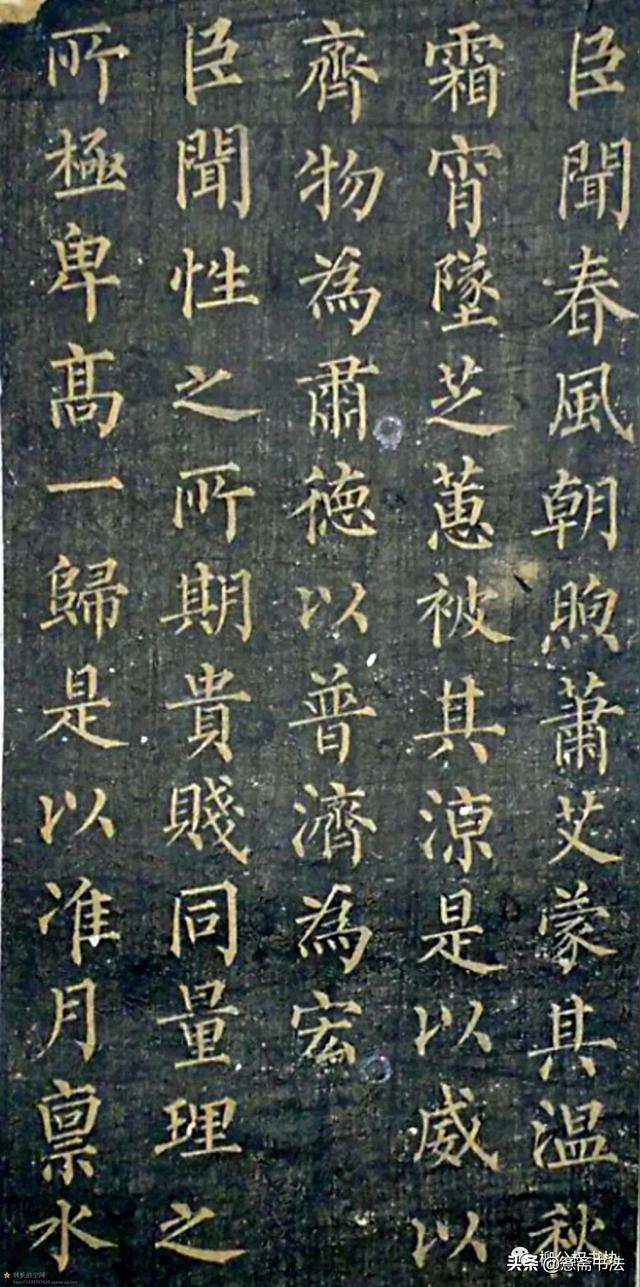 臣聞春風朝煦蕭艾蒙其温秋
霜宵墜芝蕙被其涼是以威以
齊物為肅德以普濟為宏
臣聞性之所期貴賤同量理之
所極卑高一歸是以准月禀水
头条@慈斋书法